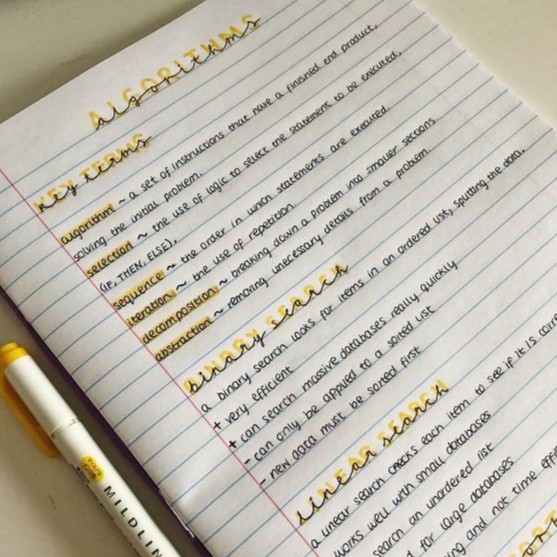 ALGORITHMS
algorithms
KEY TERMS
key terms
algorithm ~ a set of instructions that have a finished end product,
solving the initial problem.
selection ~ the use of logic to select the statement to be executed,
(IF, THEN, ELSE),
sequence ~ the order in which statements are executed.
iteration ~ the use of repetition.
decomposition ~ breaking down a problem into smaller sections.
abstraction ~ removing unnecessary details from a problem.
BINARY SEARCH
binary search
a binary search looks for items in an ordered list, splitting the data.
+ very efficient
+ can search massive databases really quickly
- can only be applied to a sorted list
- new data must be sorted first
LINEAR SEARCH
linear search
a linear search checks each item to see if it is
works well with small databases
search an unordered list
for large databases
and not time
MILDLIN